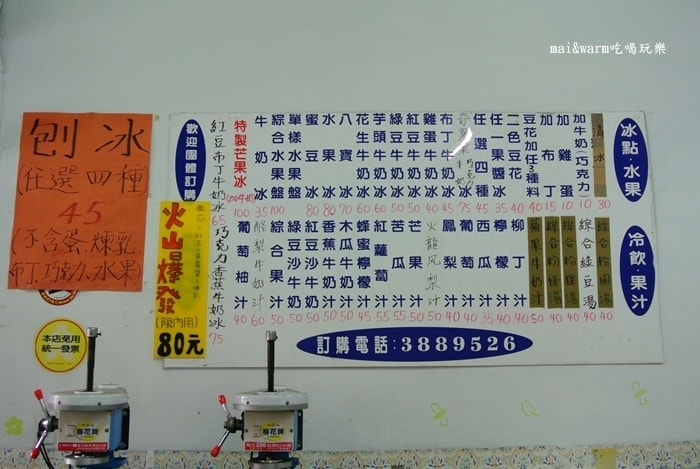 mai&warm吃喝玩樂
刨冰
(任選四種)
45
(不含蛋.煉乳
布丁.巧克力.水果)
本店免用
統一發票
歡迎團體訂購
火山爆發
(限內用)
80元
紅豆布丁牛奶冰 65
巧克力香蕉牛奶冰 75
冰點·水果
30
加牛奶(巧克力) 10
加雞蛋 10
加布丁 15
豆花加任3種料 40
二色豆花
任一果醬冰 35
任選四種 45
布丁牛奶冰
雞蛋牛奶冰
紅豆牛奶冰 50
綠豆牛奶冰 50
芋頭牛奶冰 60
花生牛奶冰 60
八寶冰
水果冰 80
蜜豆冰 80
單樣水果盤
綜合水果盤 100
牛奶冰 35
特製芒果冰 100
冷飲·果汁
綜合綠豆湯 40
蘋果牛奶汁 50
柳丁汁 40
檸檬汁 35
西瓜汁 40
鳳梨汁 40
火龍鳳梨汁
芒果汁
苦瓜汁 55
紅蘿蔔汁 55
蜂蜜檸檬汁 45
木瓜牛奶汁 50
香蕉牛奶汁 50
綠豆沙牛奶 50
紅豆沙牛奶 50
酪梨牛奶汁 60
葡萄柚汁 40
訂購電話:3889526